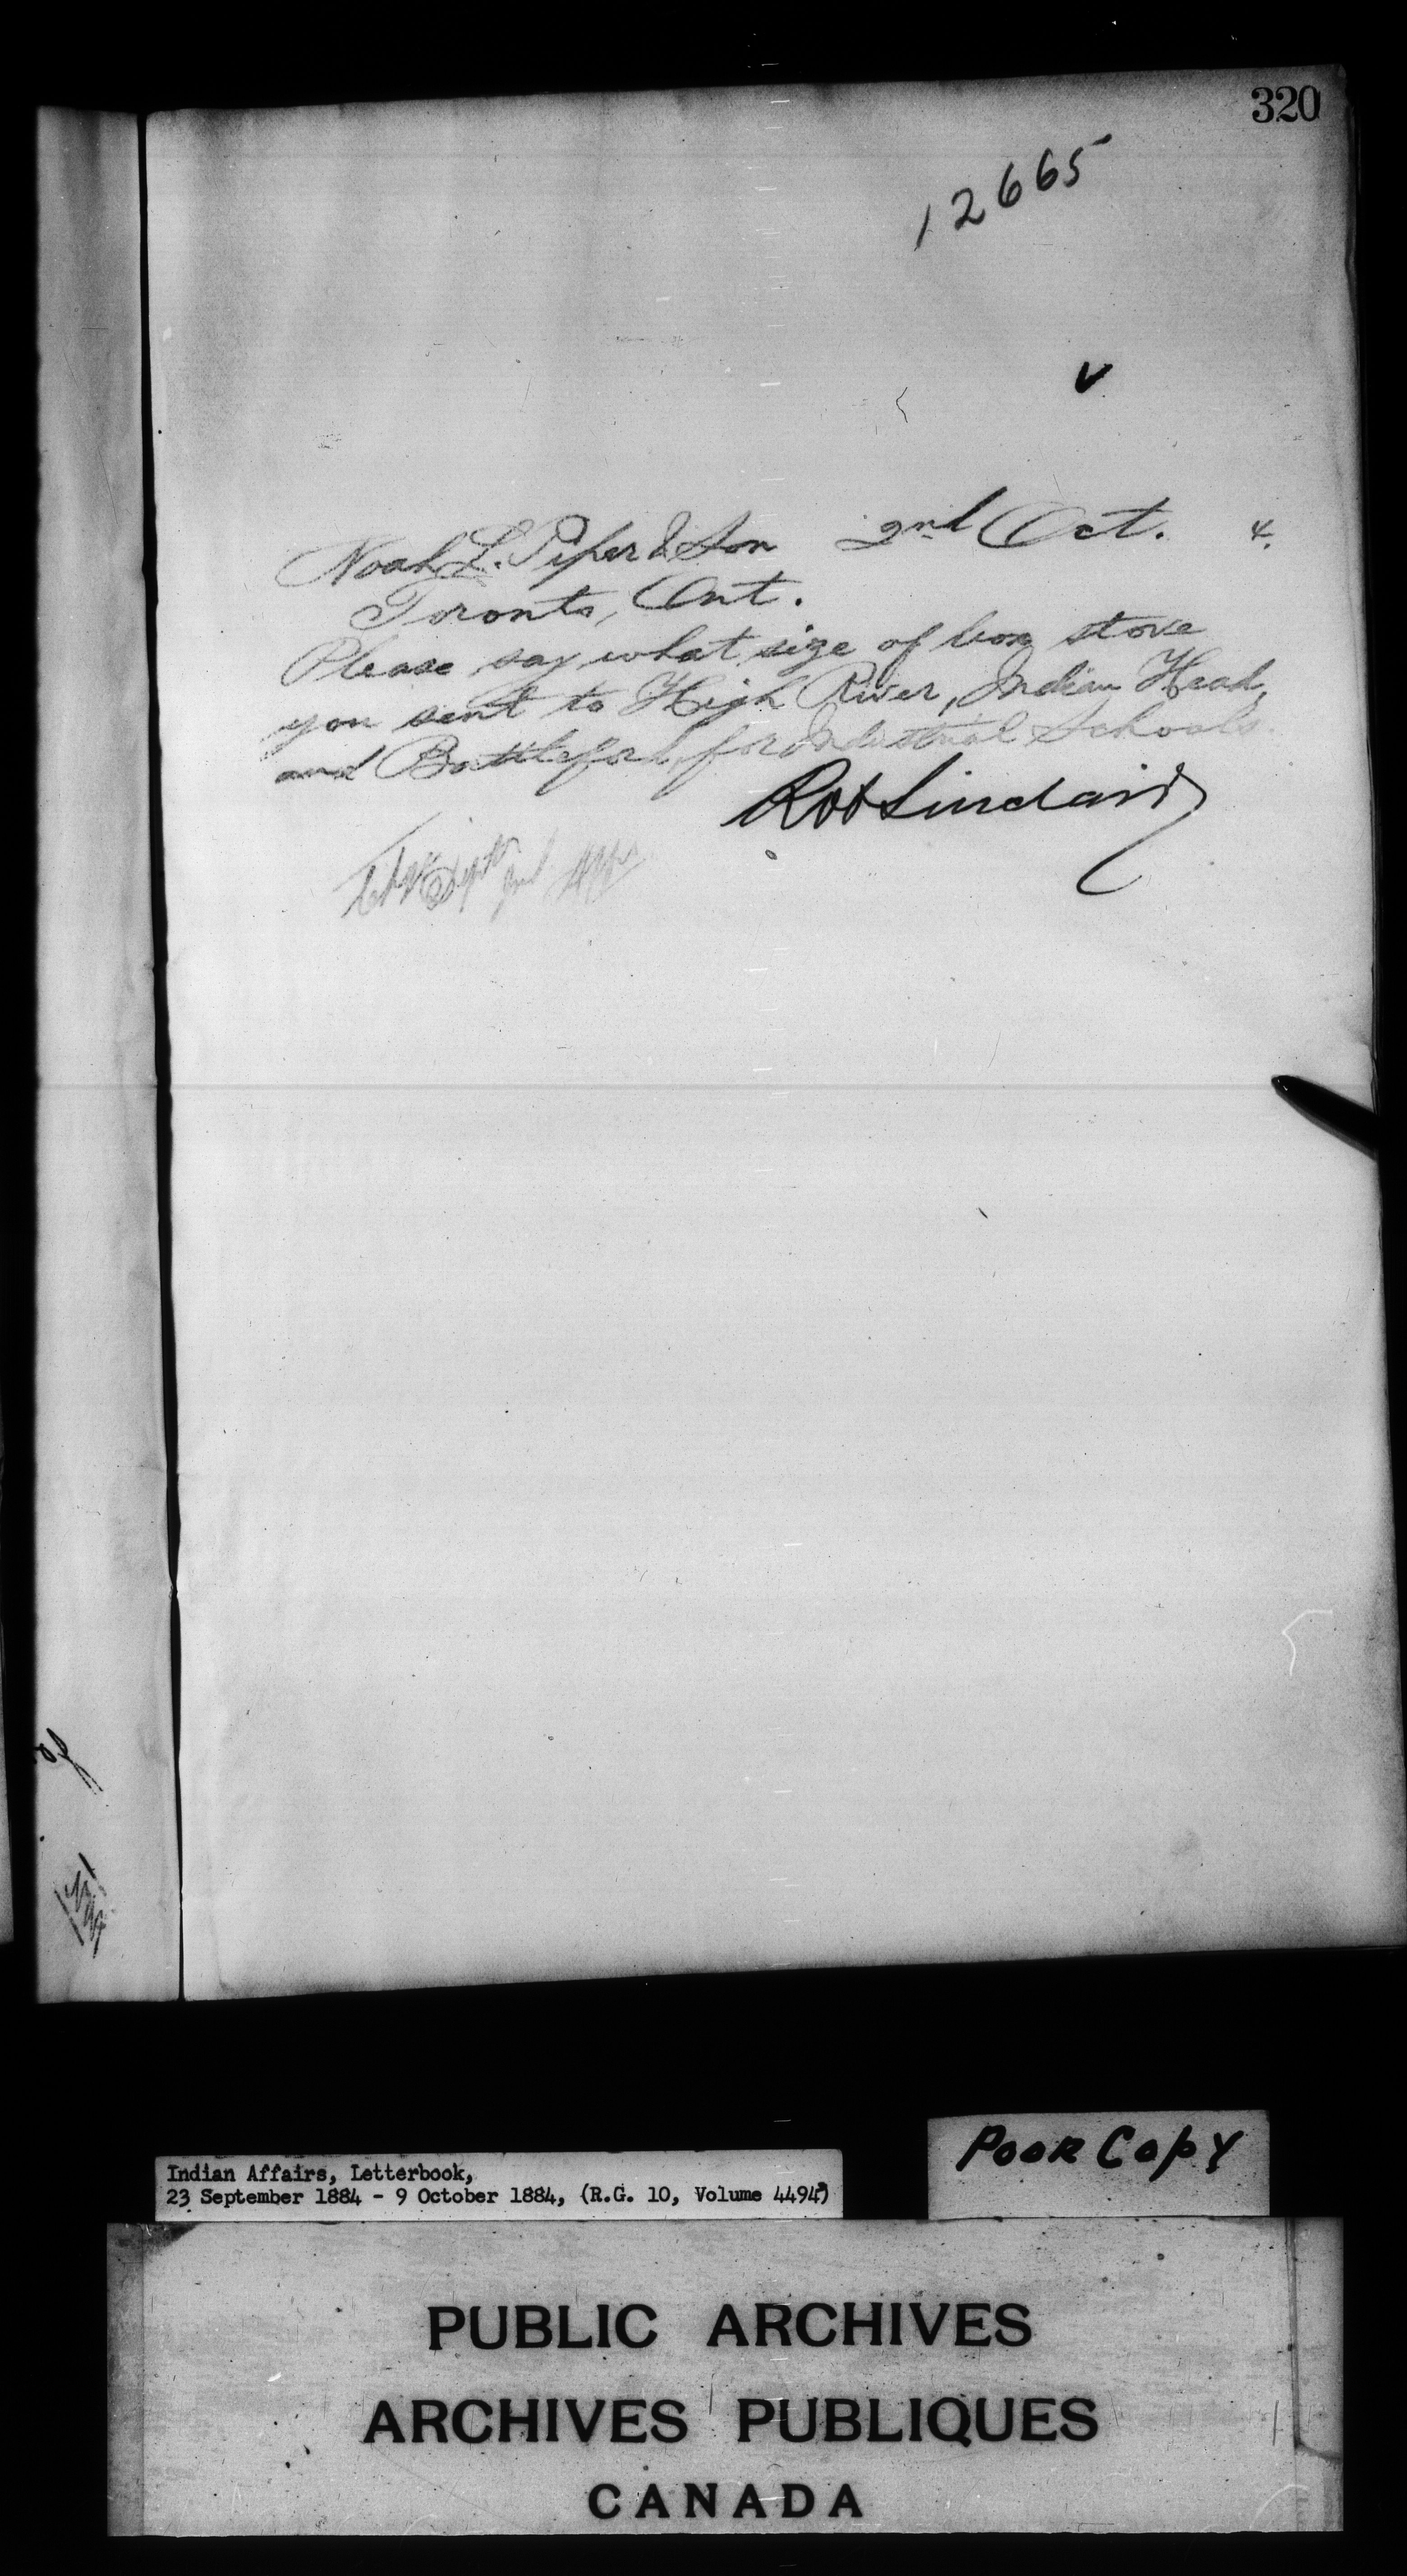 320
12665
Noah L. Piper & Son 2nd Oct. 4.
Toronto, Ont.
Please say what size of box stove
you sent to High River, Indian Head,
and Battleford, for Industrial Schools.
Rob Sinclair
Chge Dept Ind Affrs
Poor Copy
Indian Affairs, Letterbook,
23 September 1884 - 9 October 1884, (R.G. 10, Volume 4494)
PUBLIC ARCHIVES
ARCHIVES PUBLIQUES
CANADA